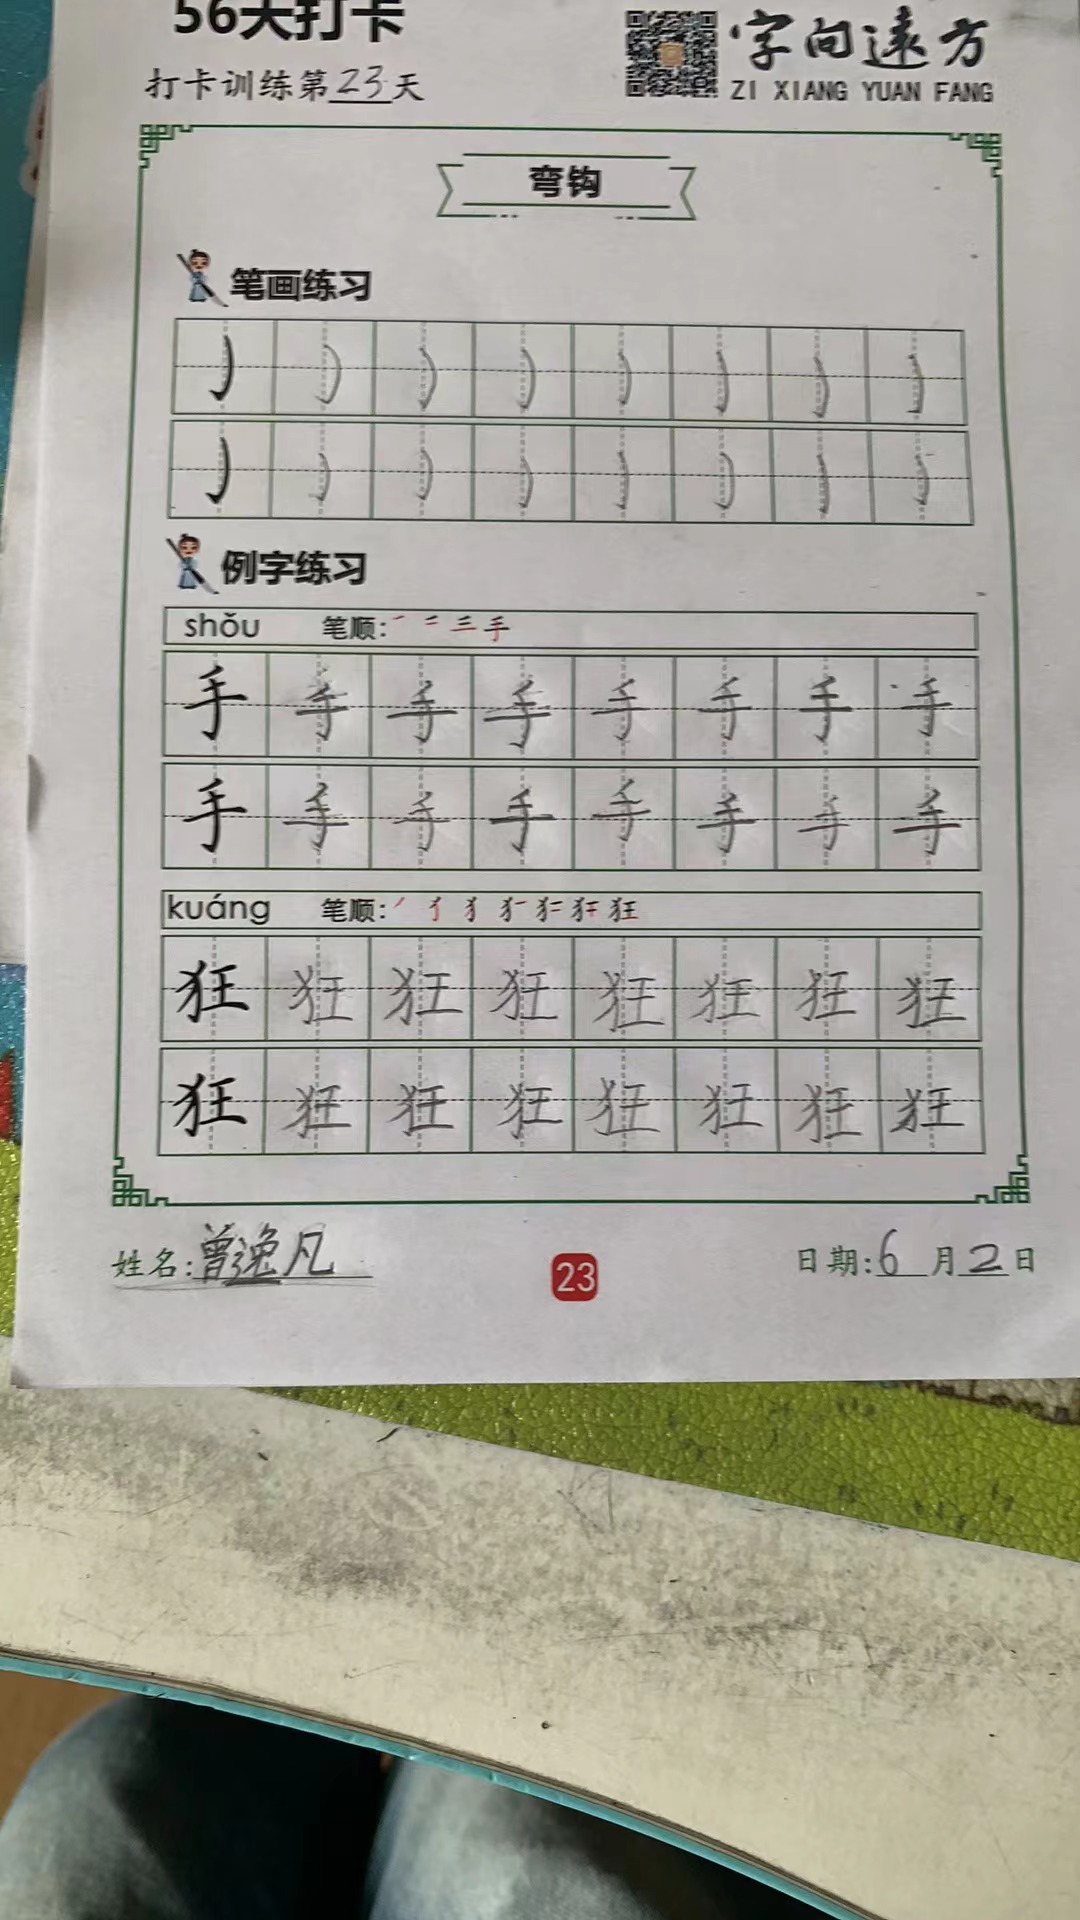 56天打卡
字向远方
打卡训练第23天
ZI XIANG YUAN FANG
弯钩
笔画练习
例字练习
shǒu 笔顺:
手 手 手 手 手 手 手 手
手 手 手 手 手 手 手 手
kuáng 笔顺:
狂 狂 狂 狂 狂 狂 狂 狂
狂 狂 狂 狂 狂 狂 狂 狂
姓名:曾逸凡
23
日期:6月2日